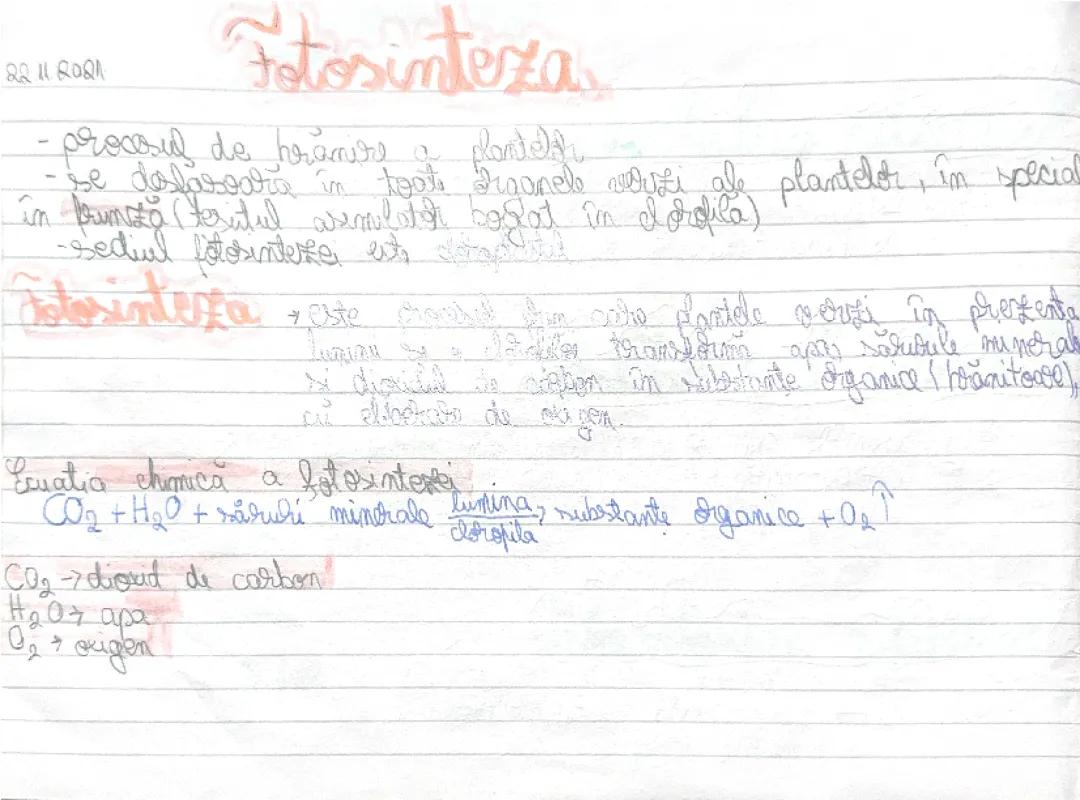 Fotosinteza
22 11 2021
- procesul de hrănire a plantelor
- se desfășoară în toate organele verzi ale plantelor, în special
în frunză (țesutul asimilator bogat în clorofilă)
- sediul fotosintezei este
Fotosinteza → este procesul prin care plantele verzi în prezența
luminii și a clorofilei transformă apa sărurile minerale
și dioxidul de carbon în substanțe organice (hrănitoare),
cu eliberare de oxigen.
Ecuația chimică a fotosintezei
CO₂ + H₂O + săruri minerale lumina → substanțe organice + O₂ ↑
clorofila
CO₂ → dioxid de carbon
H₂O → apa
O₂ → oxigen